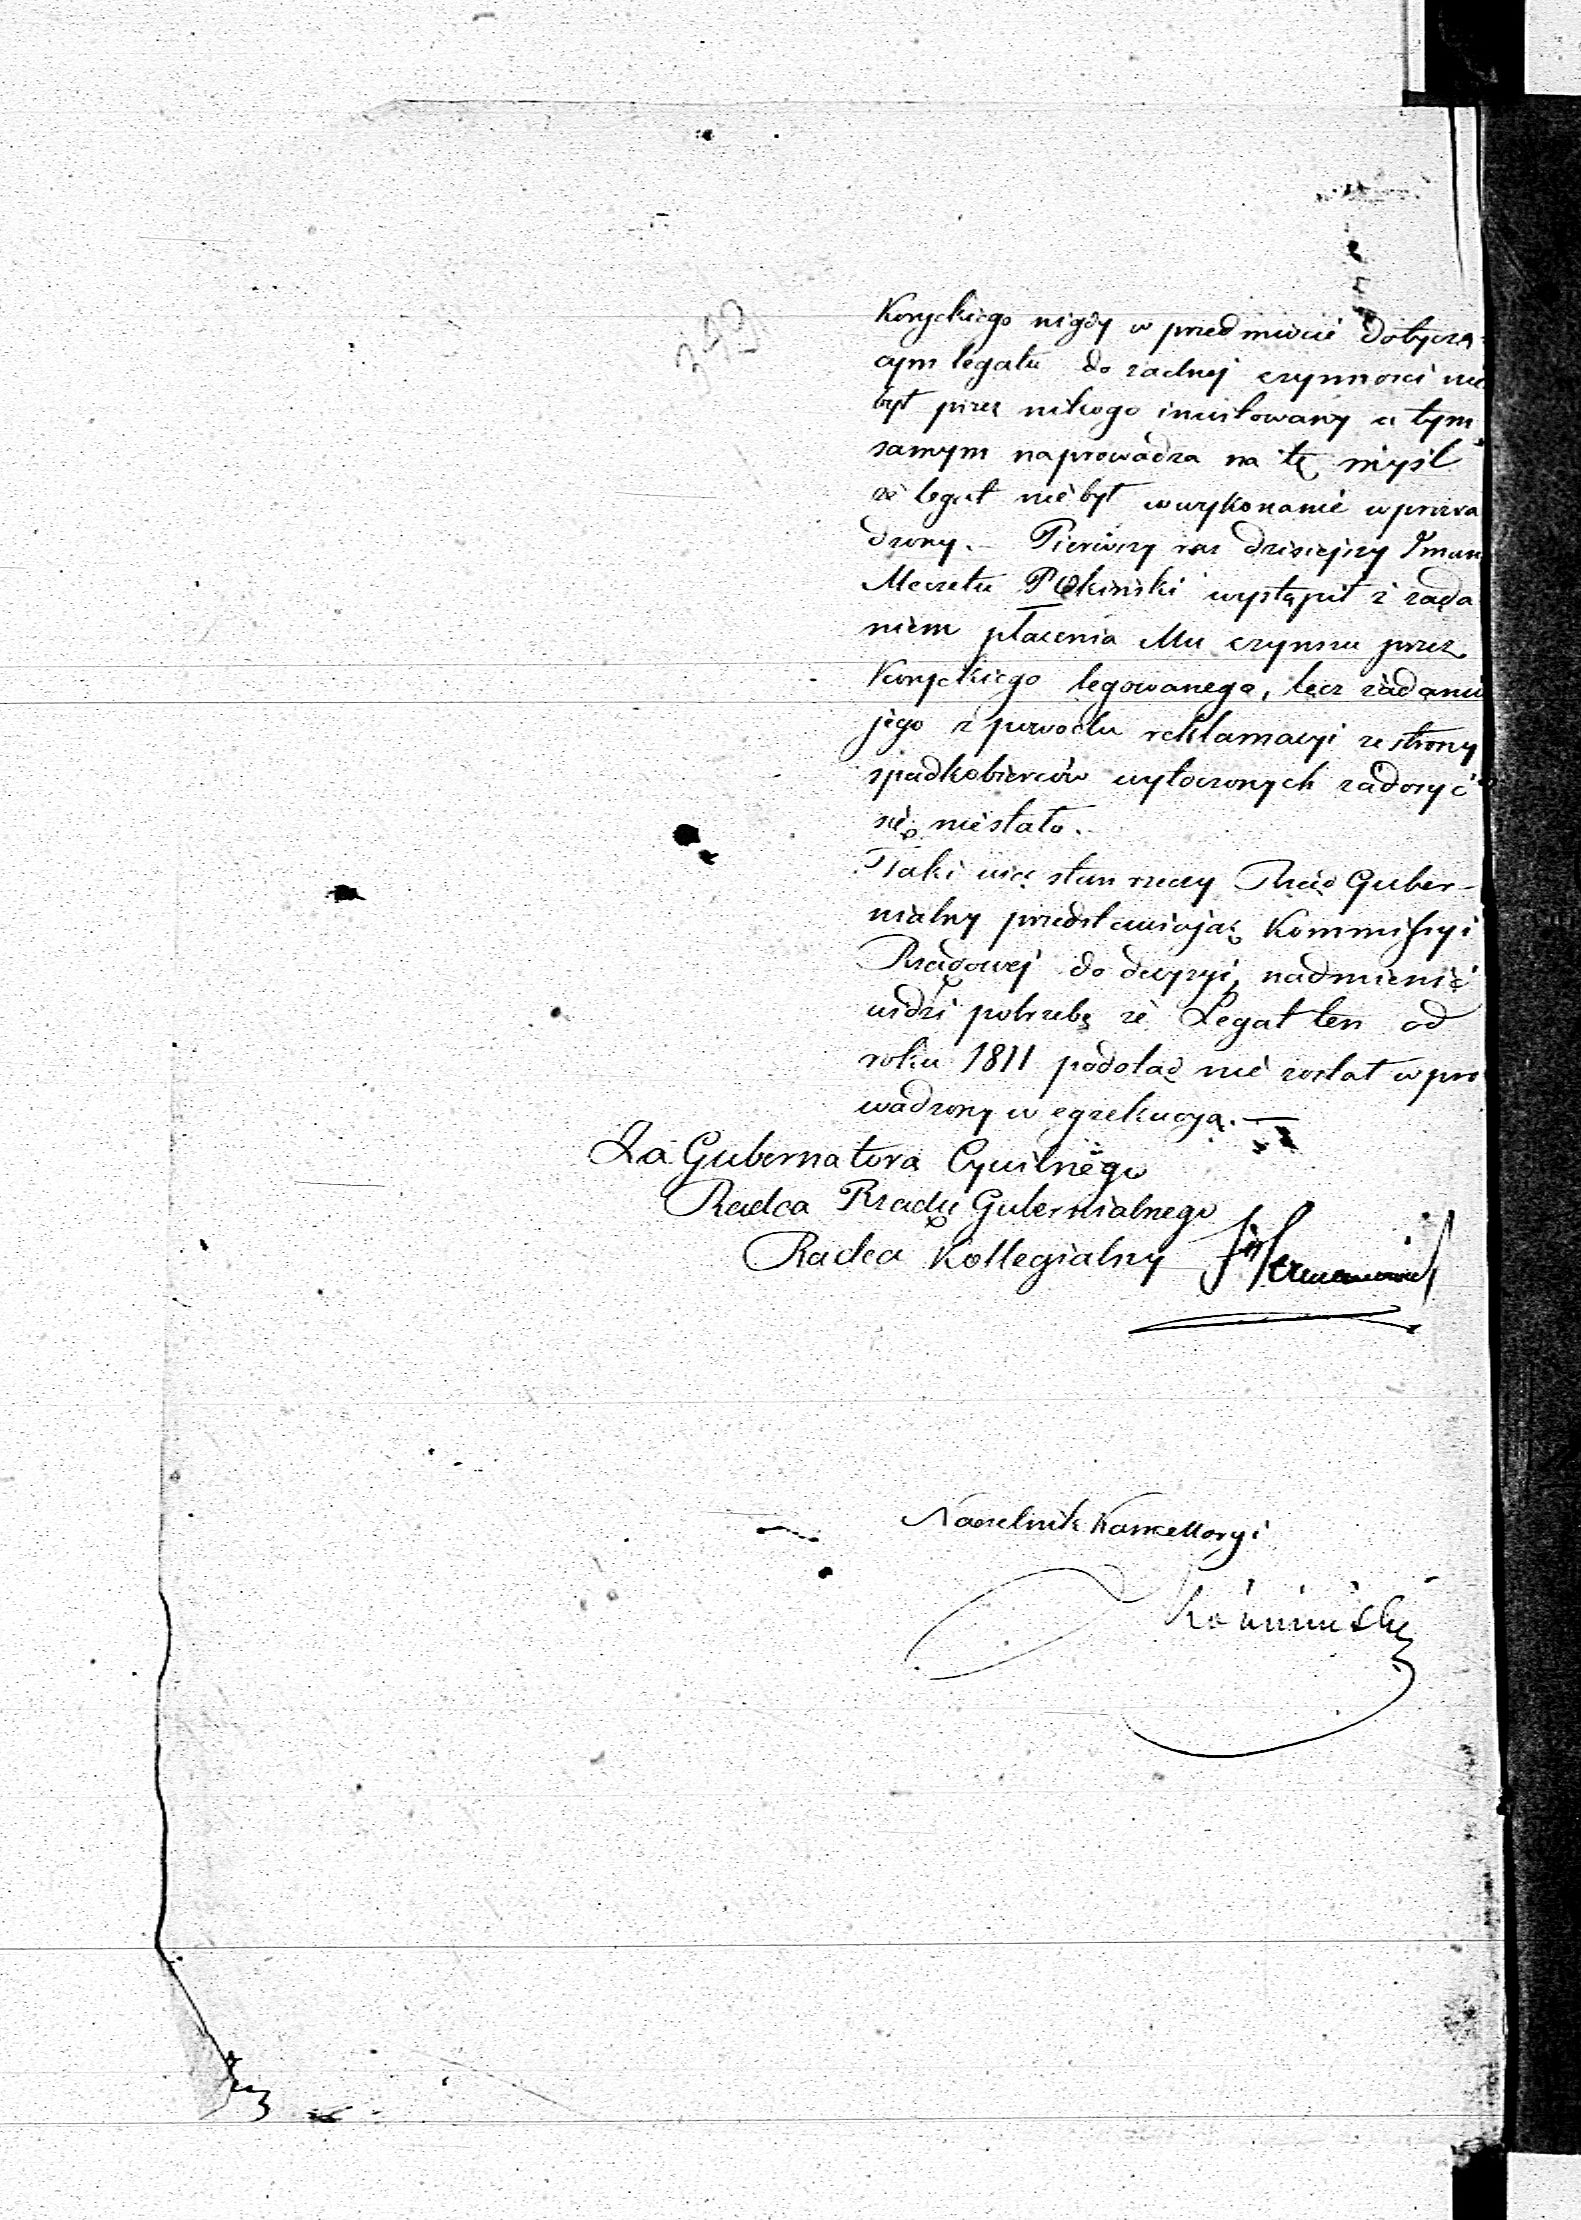 Koryckiego nigdy w przedmiocie dotyczą-
cym legatu do zadnej czynności nie
był przez nikogo inwitowany a tym
samym naprowadza na tę myśl
że legat nie był w wykonanie wprowa
dzony. – Pierwszy raz dzisiejszy Iman
Meczetu występił z żąda
niem płacenia Mu czynszu przez
Koryckiego legowanego, lecz żądaniu
jego z powodu reklamacyi ze strony
spadkobierców wytoczonych zadosyć
się nie stało.
Taki więc stan rzeczy Rząd Guber-
nialny przedstawiając Kommissyi
Rządowej do decyzyi, nadmienić
widzi potrzebę że Legat ten od
roku 1811 podotąd nie został wpro
wadzony w egzekucyą. —
Za Gubernatora Cywilnego
Radca Rządu Gubernialnego
Radca Kollegialny
Naczelnik Kancellaryi